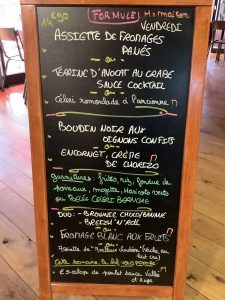 14€90 FORMULE Mi maison
VENDREDI
ASSIETTE DE FROMAGES
PANÉS
ou
TERRINE D'AVOCAT AU CRABE
SAUCE COCKTAIL
ou
Céleri remoulade à l'ancienne
BOUDIN NOIR AUX
OIGNONS CONFITS
ou
ENCORNET, CRÈME
DE CHORIZO
garnitures: frites, riz, fondue de
poireaux, mogette, Haricots verts
ou POÊLÉE CÉLERI BRANCHE
DUO: BROWNIE CHOCO/BANANE
BREIZH'N'ROLL
ou
FROMAGE BLANC AUX FRUITS
Assiette de
Cette semaine, le chef vous
Escalope de poulet sauce Vallée
d'Auge